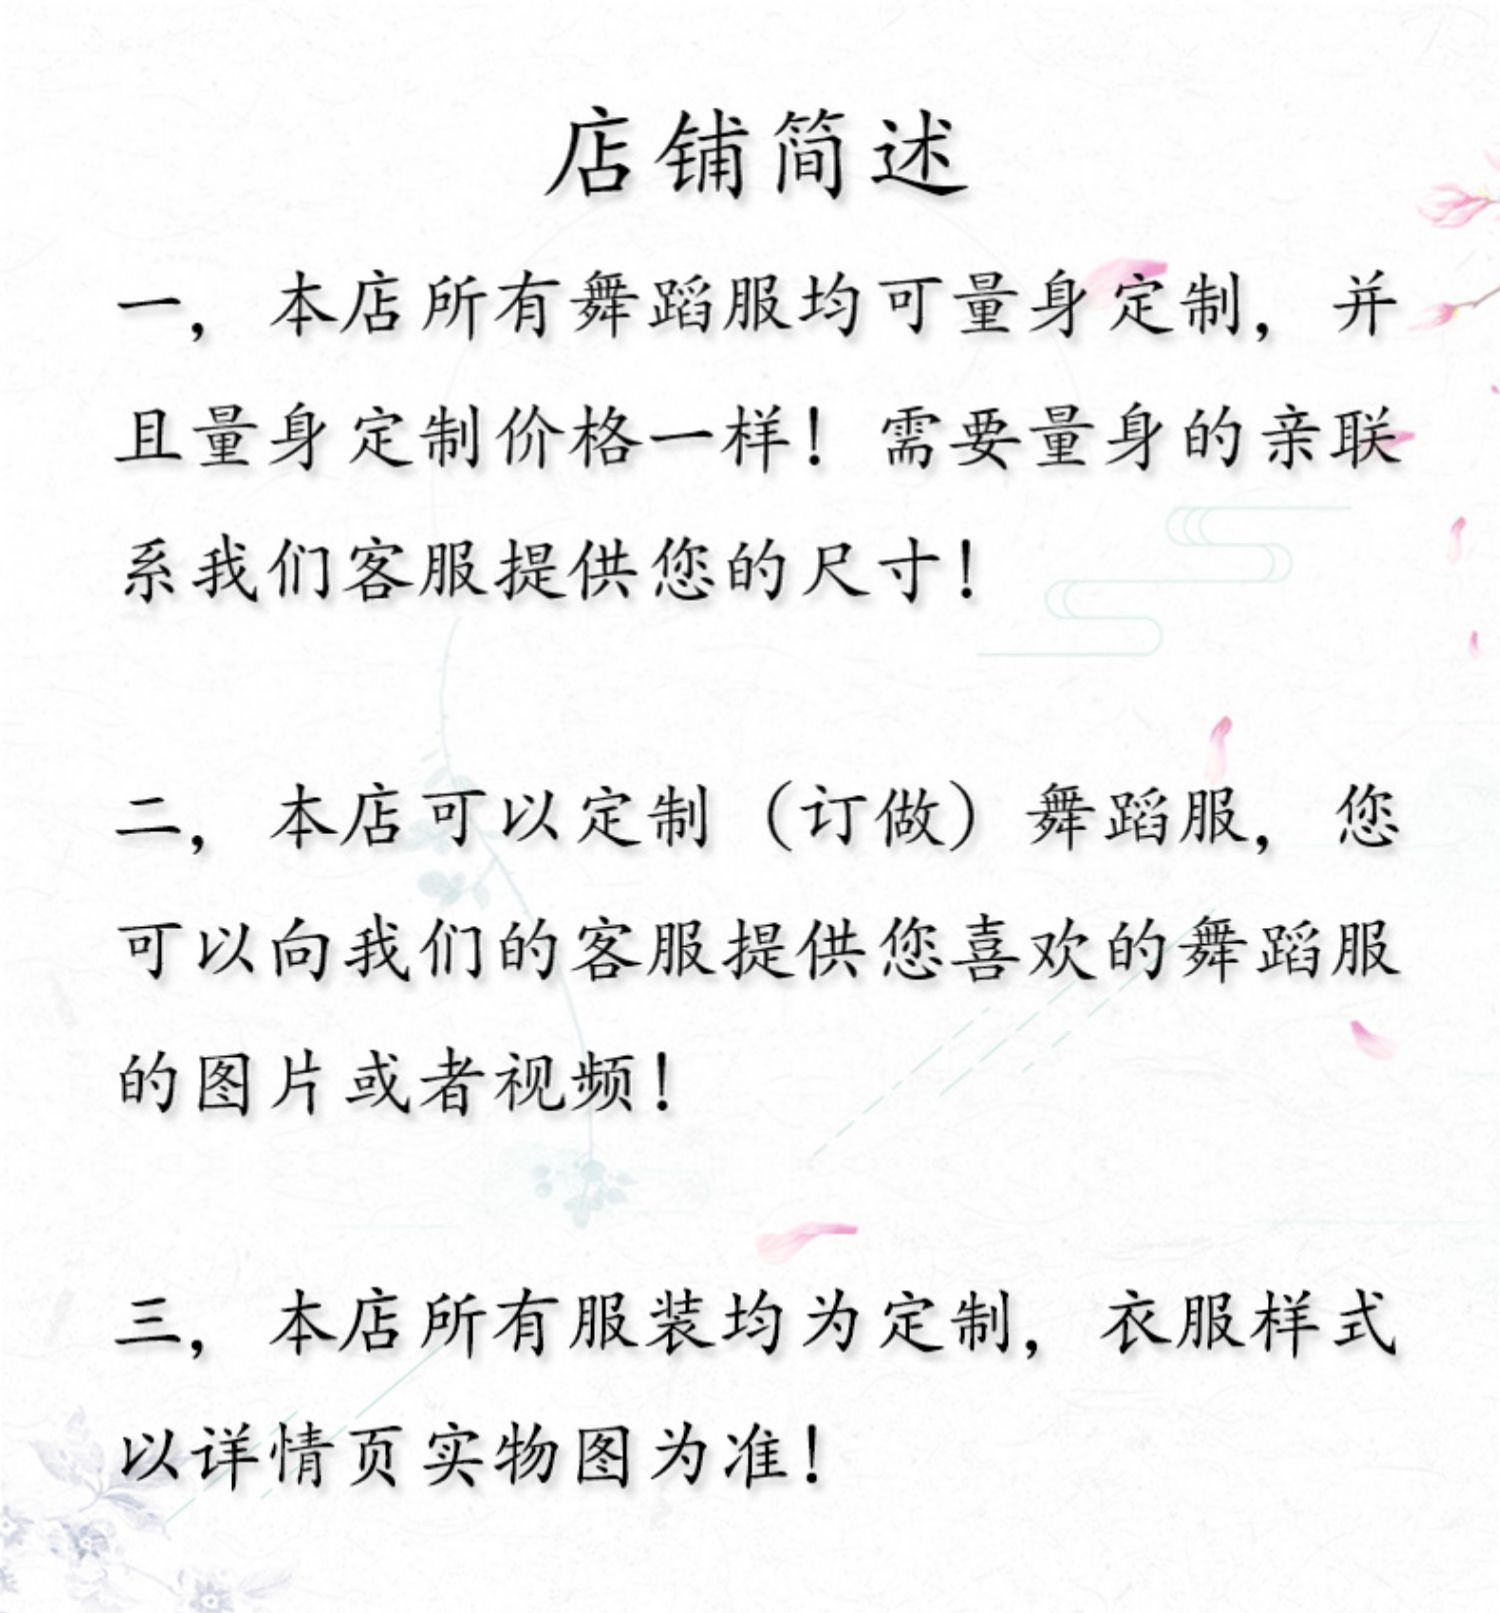 店铺简述
一，本店所有舞蹈服均可量身定制，并
且量身定制价格一样！需要量身的亲联
系我们客服提供您的尺寸！
二，本店可以定制（订做）舞蹈服，您
可以向我们的客服提供您喜欢的舞蹈服
的图片或者视频！
三，本店所有服装均为定制，衣服样式
以详情页实物图为准！